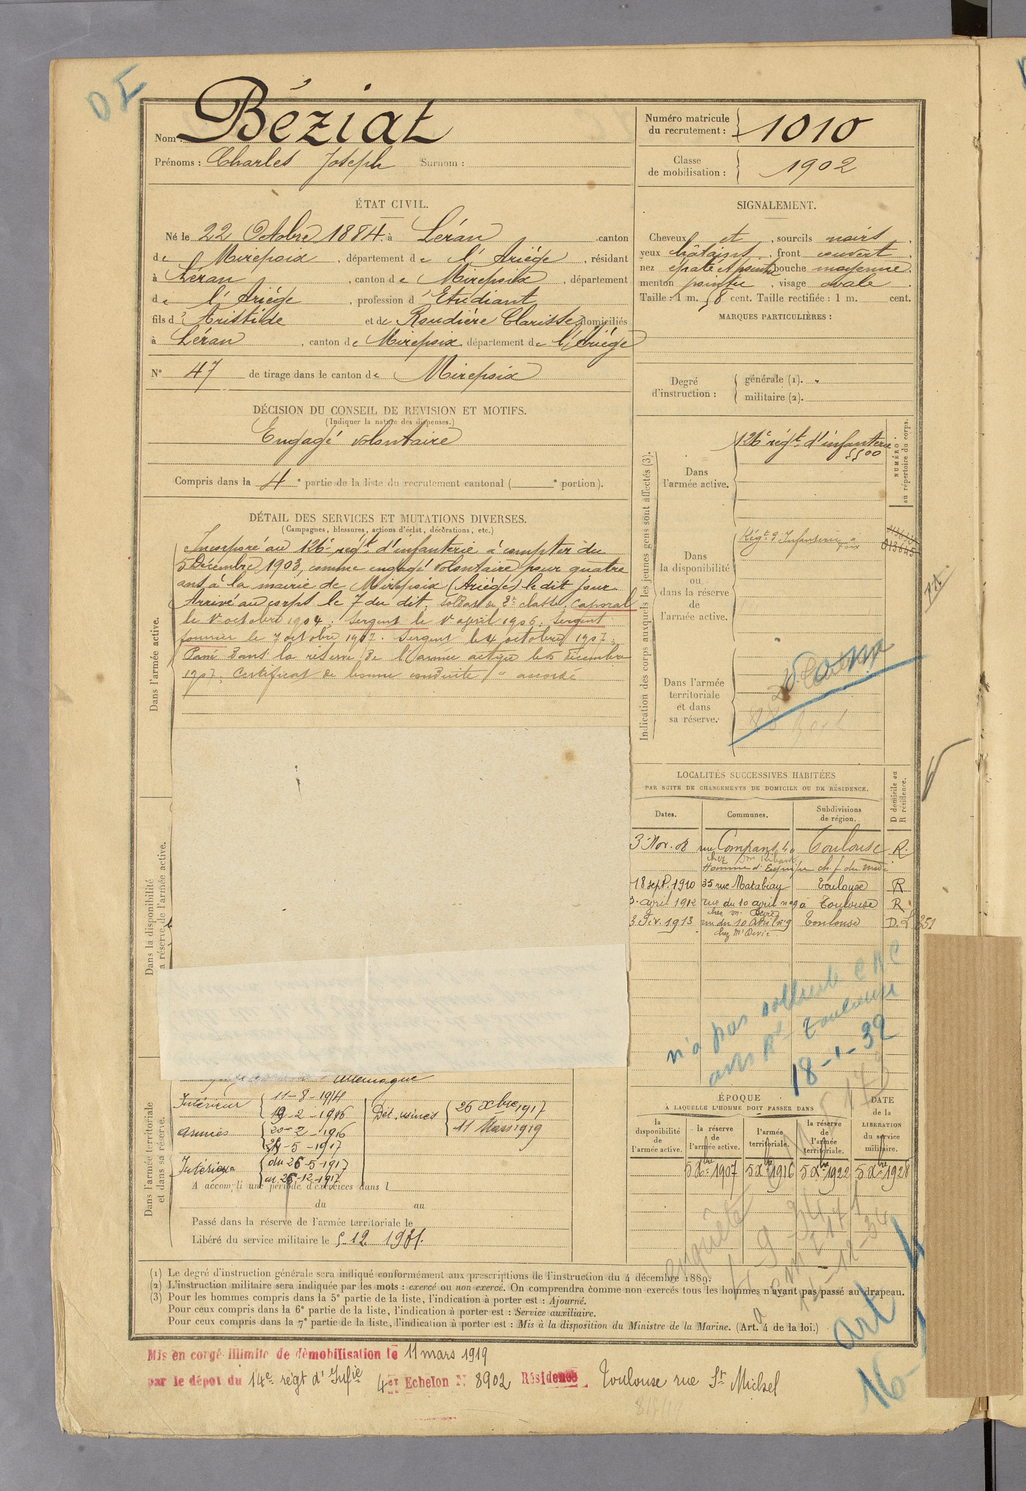 DE
Nom : Béziat
Prénoms : Charles Joseph Surnom :
Numéro matricule du recrutement : 1010
Classe de mobilisation : 1902
ÉTAT CIVIL.
Né le 22 Octobre 1884, à Léran canton
de Mirepoix, département de l'Ariège, résidant
à Léran, canton de Mirepoix, département
d l'Ariège, profession d'Etudiant
fils d'Aristide et de Roudière Clarisse domiciliés
à Léran, canton de Mirepoix, département de l'Ariège
N° 47 de tirage dans le canton de Mirepoix
SIGNALEMENT.
Cheveux et, sourcils noirs
yeux châtains, front ouvert
nez épaté, bouche moyenne
menton pointu, visage ovale
Taille : 1 m. 58 cent. Taille rectifiée : 1 m. cent.
MARQUES PARTICULIÈRES :
Degré d'instruction : générale (1).
militaire (2).
DÉCISION DU CONSEIL DE REVISION ET MOTIFS.
(Indiquer la nature des dispenses.)
Engagé volontaire
Compris dans la 4e partie de la liste du recrutement cantonal ( e portion).
DÉTAIL DES SERVICES ET MUTATIONS DIVERSES.
(Campagnes, blessures, actions d'éclat, décorations, etc.)
Dans l'armée active.
Incorporé au 126e régt d'infanterie à compter du
5 Décembre 1903, comme engagé volontaire pour quatre
ans à la mairie de Mirepoix (Ariège) le dit jour
Arrivé au corps le 7 du dit, soldat de 2e classe, Caporal
le 1er octobre 1904; Sergent le 1er april 1906; Sergent
fourrier le 7 octobre 1907. Sergent le 4 octobre 1907;
Passé dans la réserve de l'armée active le 5 décembre
1907; Certificat de bonne conduite accordé
Indication des corps auxquels les jeunes gens sont affectés (3).
NUMÉRO au répertoire du corps.
Dans l'armée active.
126e régt d'infanterie
5500
Dans la disponibilité ou dans la réserve de l'armée active.
Régt d'Infanterie
Dans l'armée territoriale et dans sa réserve.
LOCALITÉS SUCCESSIVES HABITÉES
PAR SUITE DE CHANGEMENTS DE DOMICILE OU DE RÉSIDENCE.
Dates. Communes. Subdivisions de région. D domicile ou R résidence.
3 Nov. 08 rue Compans Toulouse R
18 sept. 1910 35 rue Matabiau Toulouse R
3 avril 1912 rue du 10 avril n° 9 à Toulouse R
chez M.
3 Fév. 1913 rue du 10 Avril n° 9 Toulouse D.
n'a pas
Toulouse
18-1-32
Dans la disponibilité
la réserve de l'armée active.
Dans l'armée territoriale et dans sa réserve.
Allemagne
Intérieur 11-8-1914
19-2-1916
Dét. usines 26 Xbre 1917
11 Mars 1919
Armées 20-2-1916
25-5-1917
Intérieur du 26-5-1917
au 25-12-1917
A accompli une période d'exercices dans l
du au
Passé dans la réserve de l'armée territoriale le
Libéré du service militaire le 5.12.1921.
ÉPOQUE
A LAQUELLE L'HOMME DOIT PASSER DANS
DATE de la LIBÉRATION du service militaire.
la disponibilité de l'armée active. la réserve de l'armée active. l'armée territoriale. la réserve de l'armée territoriale.
5 Xbre 1907 5 Xbre 1916 5 Xbre 1922 5 Xbre 1928
enquête
(1) Le degré d'instruction générale sera indiqué conformément aux prescriptions de l'instruction du 4 décembre 1889.
(2) L'instruction militaire sera indiquée par les mots : exercé ou non exercé. On comprendra comme non exercés tous les hommes n'ayant pas passé au drapeau.
(3) Pour les hommes compris dans la 5e partie de la liste, l'indication à porter est : Ajourné.
Pour ceux compris dans la 6e partie de la liste, l'indication à porter est : Service auxiliaire.
Pour ceux compris dans la 7e partie de la liste, l'indication à porter est : Mis à la disposition du Ministre de la Marine. (Art. 4 de la loi.)
art 4
16-
Mis en congé illimité de démobilisation le 11 mars 1919
par le dépôt du 14e régt d'Infie 4e Echelon N° 8902 Résidence Toulouse rue St Michel